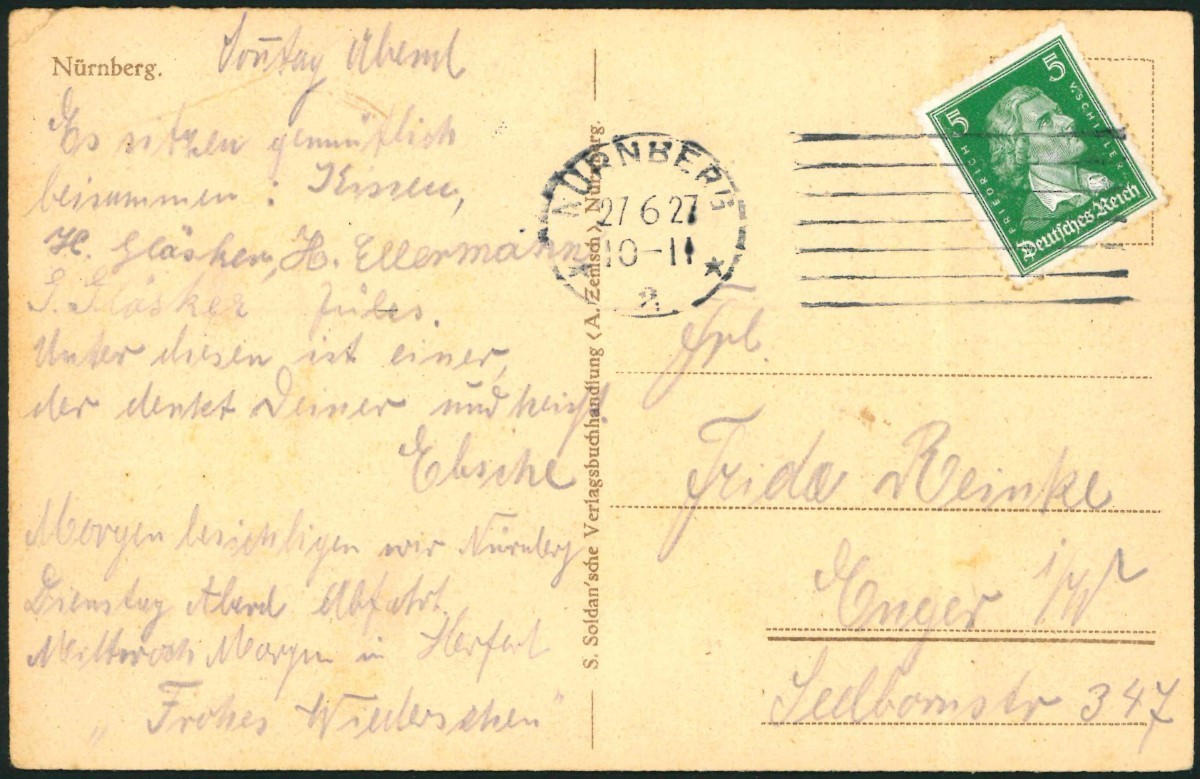 Nürnberg.
Sonntag Abend
Es sitzen gemütlich
beisammen :
H. Gläsker, H Ellermann
G. Gläsker Jules.
Unter diesen ist einer,
der denkt Deiner und heißt
Ebsche
Morgen besichtigen wir Nürnberg
Dienstag Abend Abfahrt
Mittwoch Morgen in Herford
„Frohes Wiedersehen"
S. Soldan'sche Verlagsbuchhandlung (A. Zemsch) Nürnberg.
NÜRNBERG
27 6 27
10-11
2
5
5
FRIEDRICH V. SCHILLER
Deutsches Reich
Frl.
Frida Reinke
Enger i/W
Sedlbornstr 347